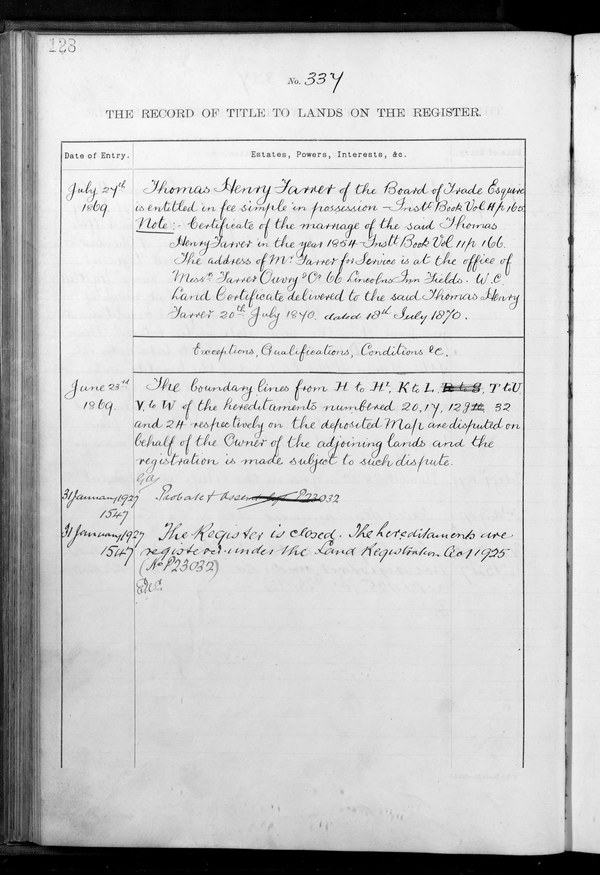 128
No. 337
THE RECORD OF TITLE TO LANDS ON THE REGISTER.
Date of Entry.
Estates, Powers, Interests, &c.
July 27th
1869
Thomas Henry Farrer of the Board of Trade Esquire
is entitled in fee simple in possession - Instt Book Vol 11 p 165
Note :- Certificate of the marriage of the said Thomas
Henry Farrer in the year 1854 - Instt Book Vol 11 p 166.
The address of Mr Farrer for Service is at the office of
Messrs Farrer Ouvry & Co 66 Lincolns Inn Fields. W.C.
Land Certificate delivered to the said Thomas Henry
Farrer 20th July 1870. dated 18th July 1870.
Exceptions, Qualifications, Conditions &c.
June 23rd
1869
The boundary lines from H to H1, K to L, R to S, T to U
V, to W of the hereditaments numbered 20, 17, 128, 32
and 24 respectively on the deposited Map are disputed on
behalf of the Owner of the adjoining lands and the
registration is made subject to such dispute.
31 January 1927
1547
Probate & P23032
31 January 1927
1547
The Register is closed. The hereditaments are
registered under the Land Registration Act 1925
(No P23032)